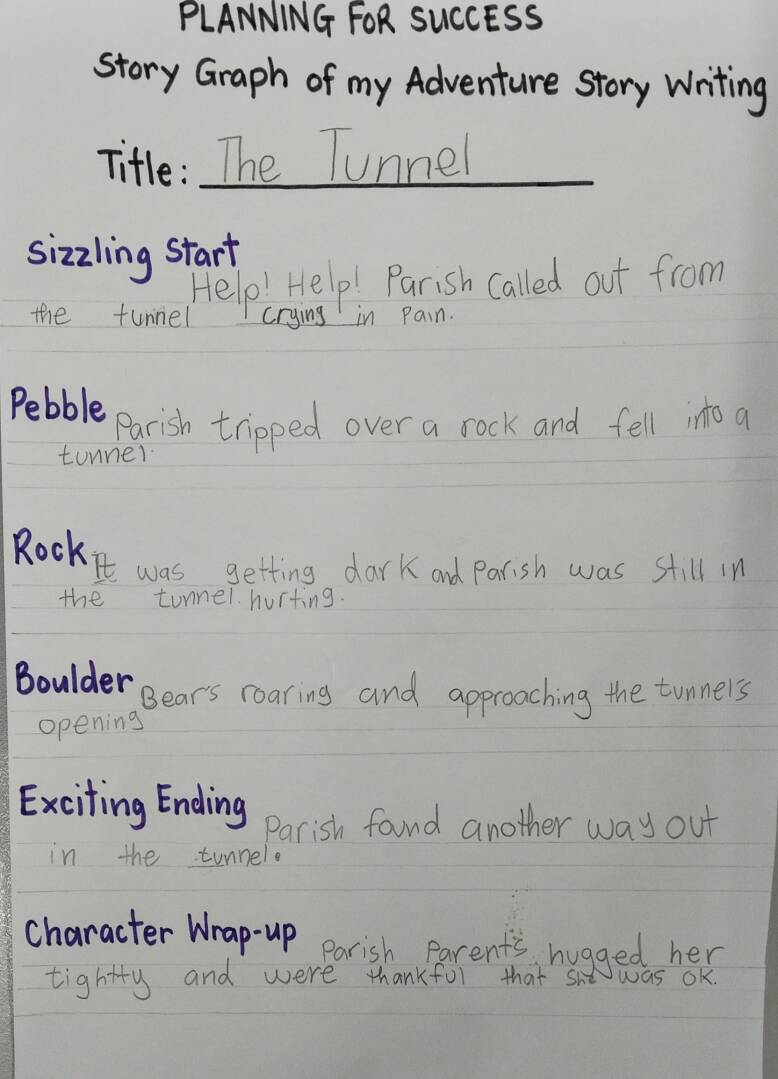 PLANNING FOR SUCCESS
Story Graph of my Adventure Story Writing
Title: The Tunnel
Sizzling Start
Help! Help! Parish Called out from
the tunnel crying in Pain.
Pebble Parish tripped over a rock and fell into a
tunnel.
Rock It was getting dark and Parish was Still in
the tunnel. hurting.
Boulder Bear's roaring and approaching the tunnel's
opening
Exciting Ending Parish found another way out
in the tunnel.
Character Wrap-up Parish Parent's hugged her
tightty and were thankful that She was OK.